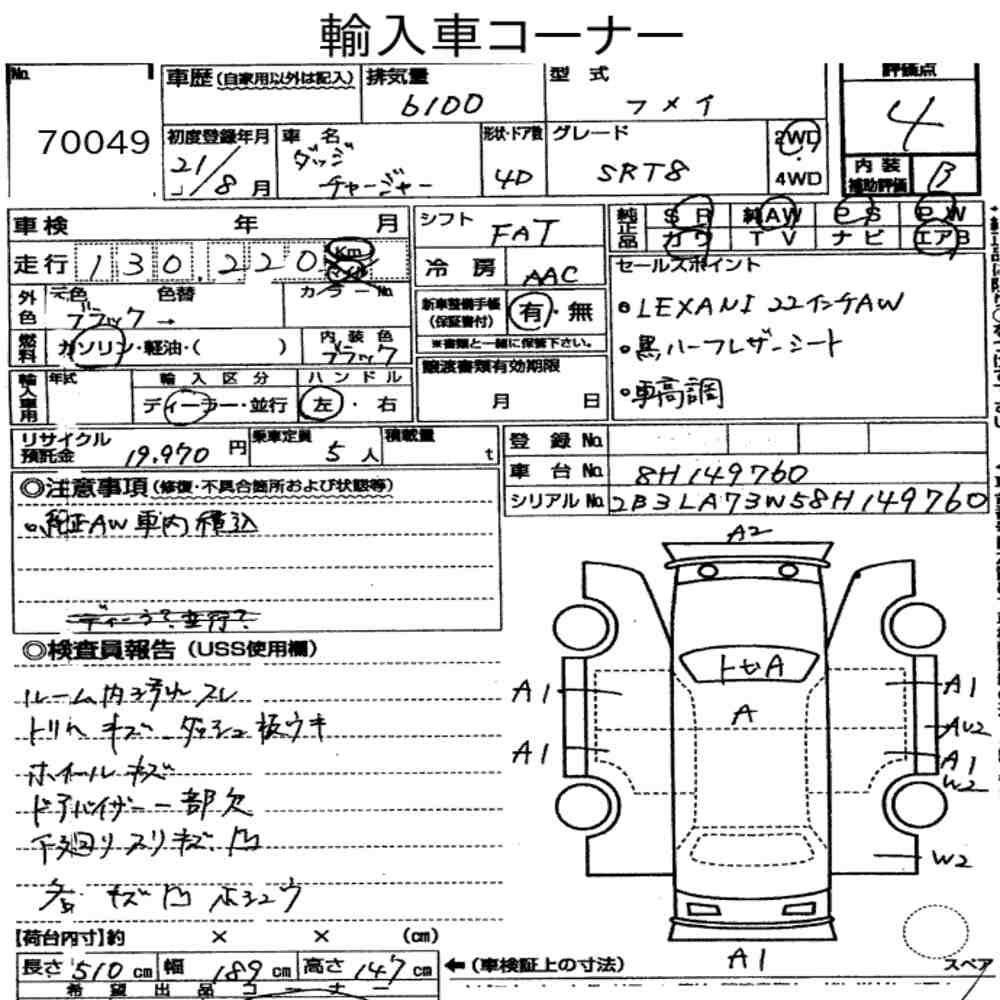 輸入車コーナー
No. 車歴(自家用以外は記入) 排気量 型式 評価点
70049 6100 フメイ 4
初度登録年月 車名 形状・ドア数 グレード 2WD
21/8月 ダッジ チャージャー 4D SRT8 4WD
内装補助評価 B
車検 年 月 シフト FAT 純正品 SR 純AW PS PW
走行 130,220 Km マイル 冷房 AAC カワ TV ナビ エアB
外色 元色 色替 カラーNo. 新車整備手帳(保証書付) 有・無 セールスポイント
ブラック → ※書類と一緒に保管下さい。 ●LEXANI 22インチAW
燃料 ガソリン・軽油・( ) 内装色 ブラック 譲渡書類有効期限 ●黒ハーフレザーシート
輸入車用 年式 輸入区分 ハンドル 月 日 ●車高調
ディーラー・並行 左・右
リサイクル預託金 19,970円 乗車定員 5人 積載量 t 登録No.
車台No. 8H149760
シリアルNo. 2B3LA73W58H149760
◎注意事項(修復・不具合箇所および状態等)
●純正AW車内積込
ディーラ?並行?
◎検査員報告(USS使用欄)
ルーム内汚れスレ
トリムキズ ダッシュ板ウキ
ホイールキズ
ドアバイザー一部欠
下廻りスリキズ凹
各キズ凹ホシュウ
A2
トセA
A
A1 A1
AU2
A1 A1
W2
W2
A1
スペア
【荷台内寸】約 × × (cm)
長さ 510cm 幅 189cm 高さ 147cm ←(車検証上の寸法)
希望出品コーナー